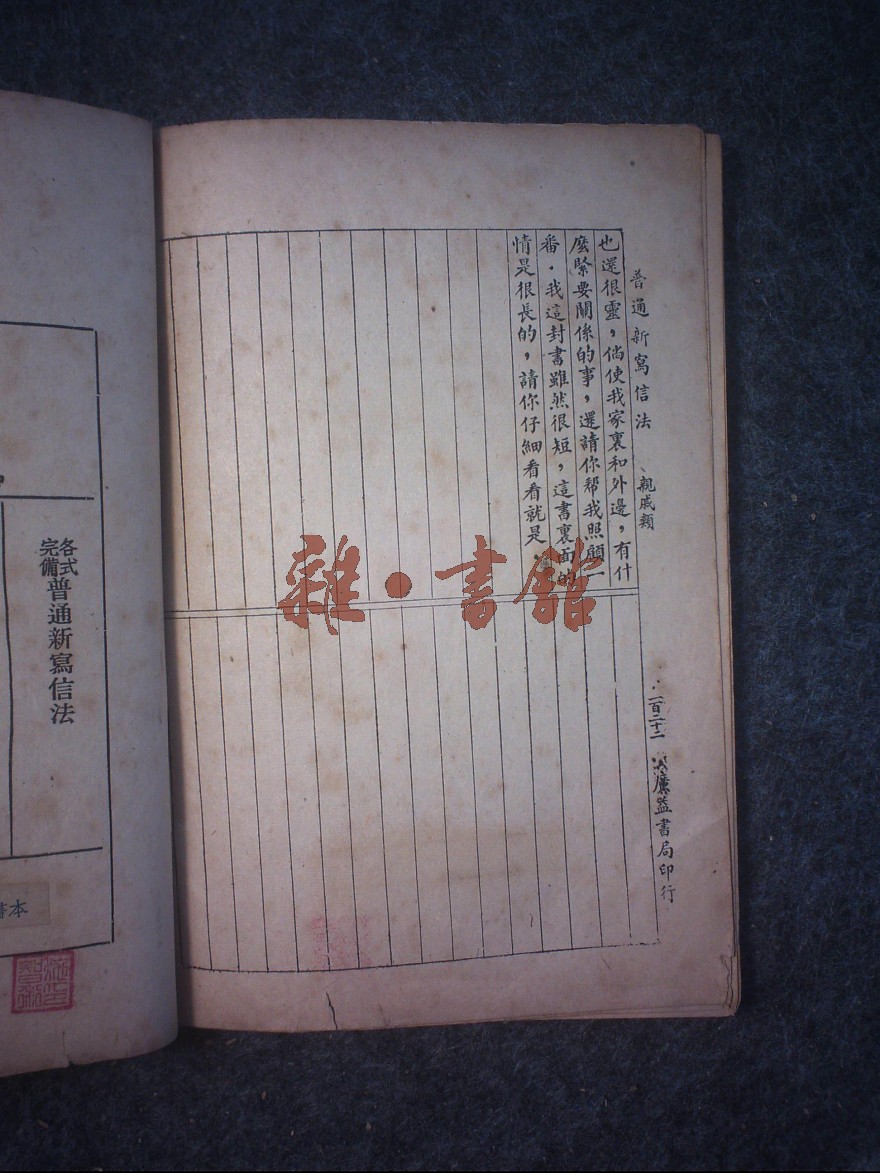 普通新寫信法 親戚類 一百二十二 廣益書局印行
也還很靈，倘使我家裏和外邊，有什
麽緊要關係的事，還請你帮我照顧一
番．我這封書雖然很短，這書裏面的
情是很長的，請你仔細看看就是．
雜・書館
各式
完備
普通新寫信法
本